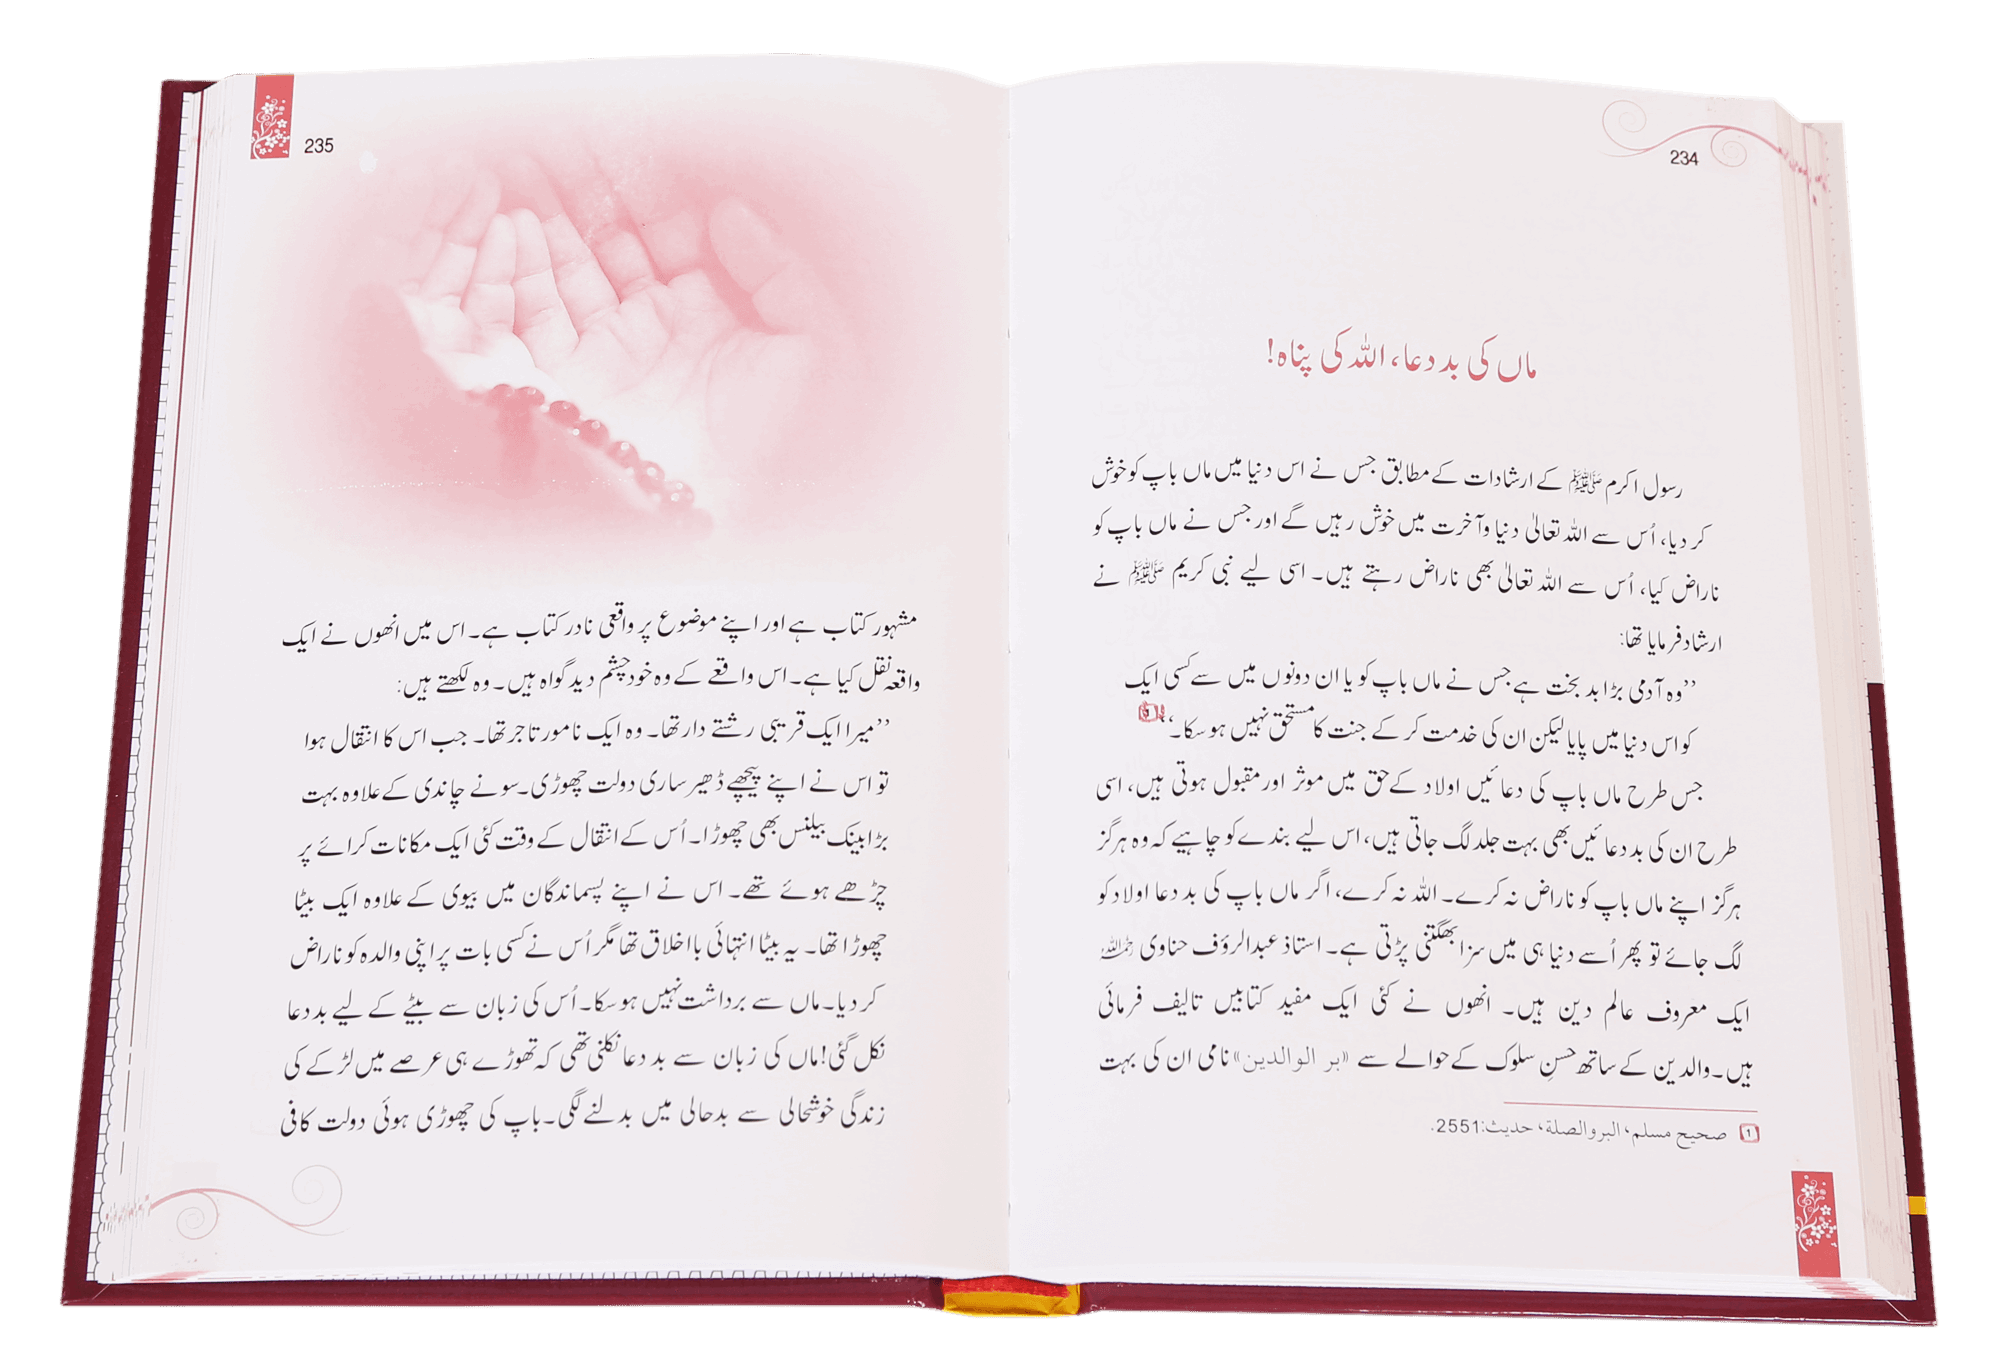 234
ماں کی بددعا، اللہ کی پناہ!
رسول اکرم ﷺ کے ارشادات کے مطابق جس نے اس دنیا میں ماں باپ کو خوش
کر دیا، اُس سے اللہ تعالیٰ دنیا وآخرت میں خوش رہیں گے اور جس نے ماں باپ کو
ناراض کیا، اُس سے اللہ تعالیٰ بھی ناراض رہتے ہیں۔ اسی لیے نبی کریم ﷺ نے
ارشاد فرمایا تھا:
’’وہ آدمی بڑا بد بخت ہے جس نے ماں باپ کو یا ان دونوں میں سے کسی ایک
کو اس دنیا میں پایا لیکن ان کی خدمت کر کے جنت کا مستحق نہیں ہو سکا۔‘‘ 1
جس طرح ماں باپ کی دعائیں اولاد کے حق میں موثر اور مقبول ہوتی ہیں، اسی
طرح ان کی بددعائیں بھی بہت جلد لگ جاتی ہیں، اس لیے بندے کو چاہیے کہ وہ ہرگز
ہرگز اپنے ماں باپ کو ناراض نہ کرے۔ اللہ نہ کرے، اگر ماں باپ کی بددعا اولاد کو
لگ جائے تو پھر اُسے دنیا ہی میں سزا بھگتنی پڑتی ہے۔ استاذ عبدالرؤف حناوی رحمہ اللہ
ایک معروف عالم دین ہیں۔ انھوں نے کئی ایک مفید کتابیں تالیف فرمائی
ہیں۔ والدین کے ساتھ حسنِ سلوک کے حوالے سے «بر الوالدین» نامی ان کی بہت
1 صحیح مسلم، البر والصلة، حدیث:2551.
235
مشہور کتاب ہے اور اپنے موضوع پر واقعی نادر کتاب ہے۔ اس میں انھوں نے ایک
واقعہ نقل کیا ہے۔ اس واقعے کے وہ خود چشم دید گواہ ہیں۔ وہ لکھتے ہیں:
’’میرا ایک قریبی رشتے دار تھا۔ وہ ایک نامور تاجر تھا۔ جب اس کا انتقال ہوا
تو اس نے اپنے پیچھے ڈھیر ساری دولت چھوڑی۔ سونے چاندی کے علاوہ بہت
بڑا بینک بیلنس بھی چھوڑا۔ اُس کے انتقال کے وقت کئی ایک مکانات کرائے پر
چڑھے ہوئے تھے۔ اس نے اپنے پسماندگان میں بیوی کے علاوہ ایک بیٹا
چھوڑا تھا۔ یہ بیٹا انتہائی بااخلاق تھا مگر اُس نے کسی بات پر اپنی والدہ کو ناراض
کر دیا۔ ماں سے برداشت نہیں ہو سکا۔ اُس کی زبان سے بیٹے کے لیے بددعا
نکل گئی! ماں کی زبان سے بددعا نکلنی تھی کہ تھوڑے ہی عرصے میں لڑکے کی
زندگی خوشحالی سے بدحالی میں بدلنے لگی۔ باپ کی چھوڑی ہوئی دولت کافی